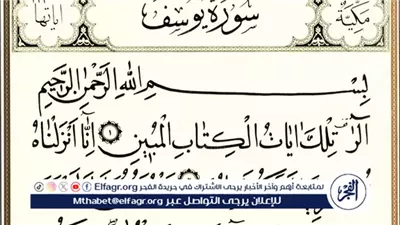 مكية سورة يوسف آياتها
بِسْمِ اللهِ الرَّحْمٰنِ الرَّحِيمِ
الٓرٰ تِلْكَ اٰيَاتُ الْكِتَابِ الْمُبِينِ ١ اِنَّٓا اَنْزَلْنَاهُ
لمتابعة أهم وآخر الأخبار يرجى الاشتراك في جريدة الفجر Elfagr.org
للإعلان يرجى التواصل عبر Mthabet@elfagr.org
الفجر